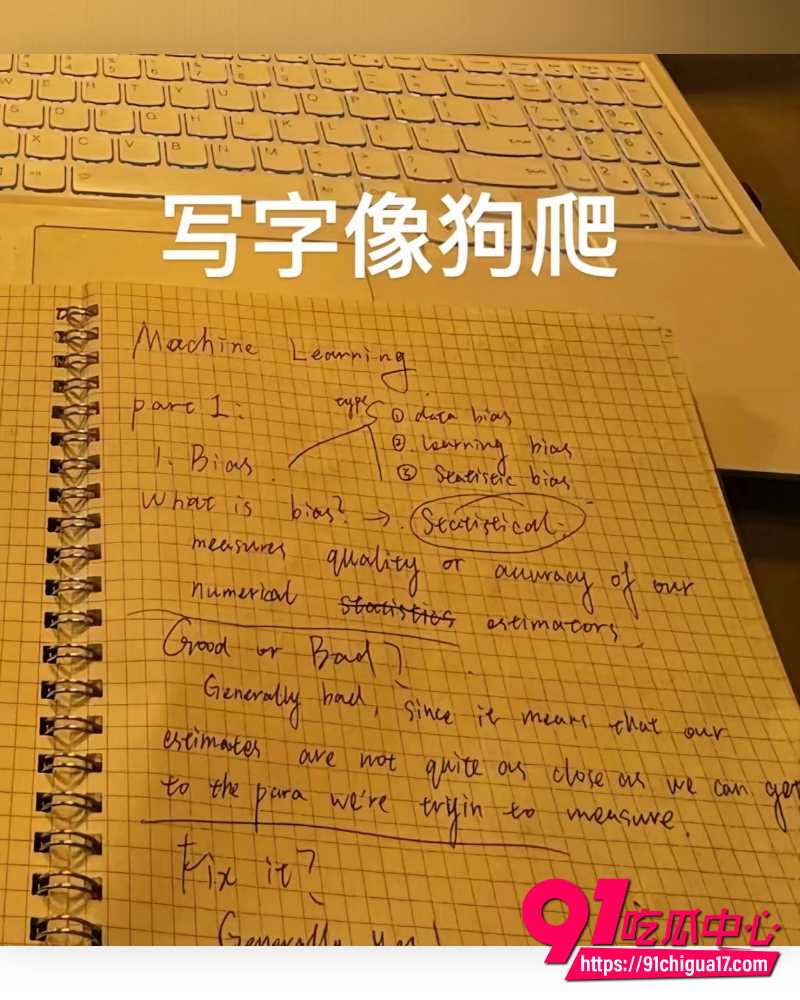 写字像狗爬
Machine Learning
part 1:
types ① data bias
② Learning bias
③ Statistic bias
1. Bias.
What is bias? → Statistical:
measures quality or accuracy of our
numerical Statistics estimators.
Good or Bad?
Generally bad, since it means that our
estimates are not quite as close as we can get
to the para we're tryin to measure.
Fix it?
Generally
91吃瓜中心
https://91chigua17.com